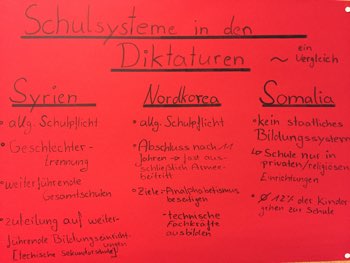 Schulsysteme in den
Diktaturen ~ ein Vergleich
Syrien
• allg. Schulpflicht
• Geschlechter-
trennung
• weiterführende
Gesamtschulen
• zuteilung auf weiter-
führende Bildungseinricht-
ungen
[technische Sekundarstufe]
Nordkorea
• allg. Schulpflicht
• Abschluss nach 11
Jahren → fast aus-
schließlich Armee-
beitritt
• Ziele: - Analphabetismus
beseitigen
- technische
Fachkräfte
ausbilden
Somalia
• kein staatliches
Bildungssystem
↳ Schule nur in
privaten/religiösen
Einrichtungen
• Ø 12% der Kinder
gehen zur Schule